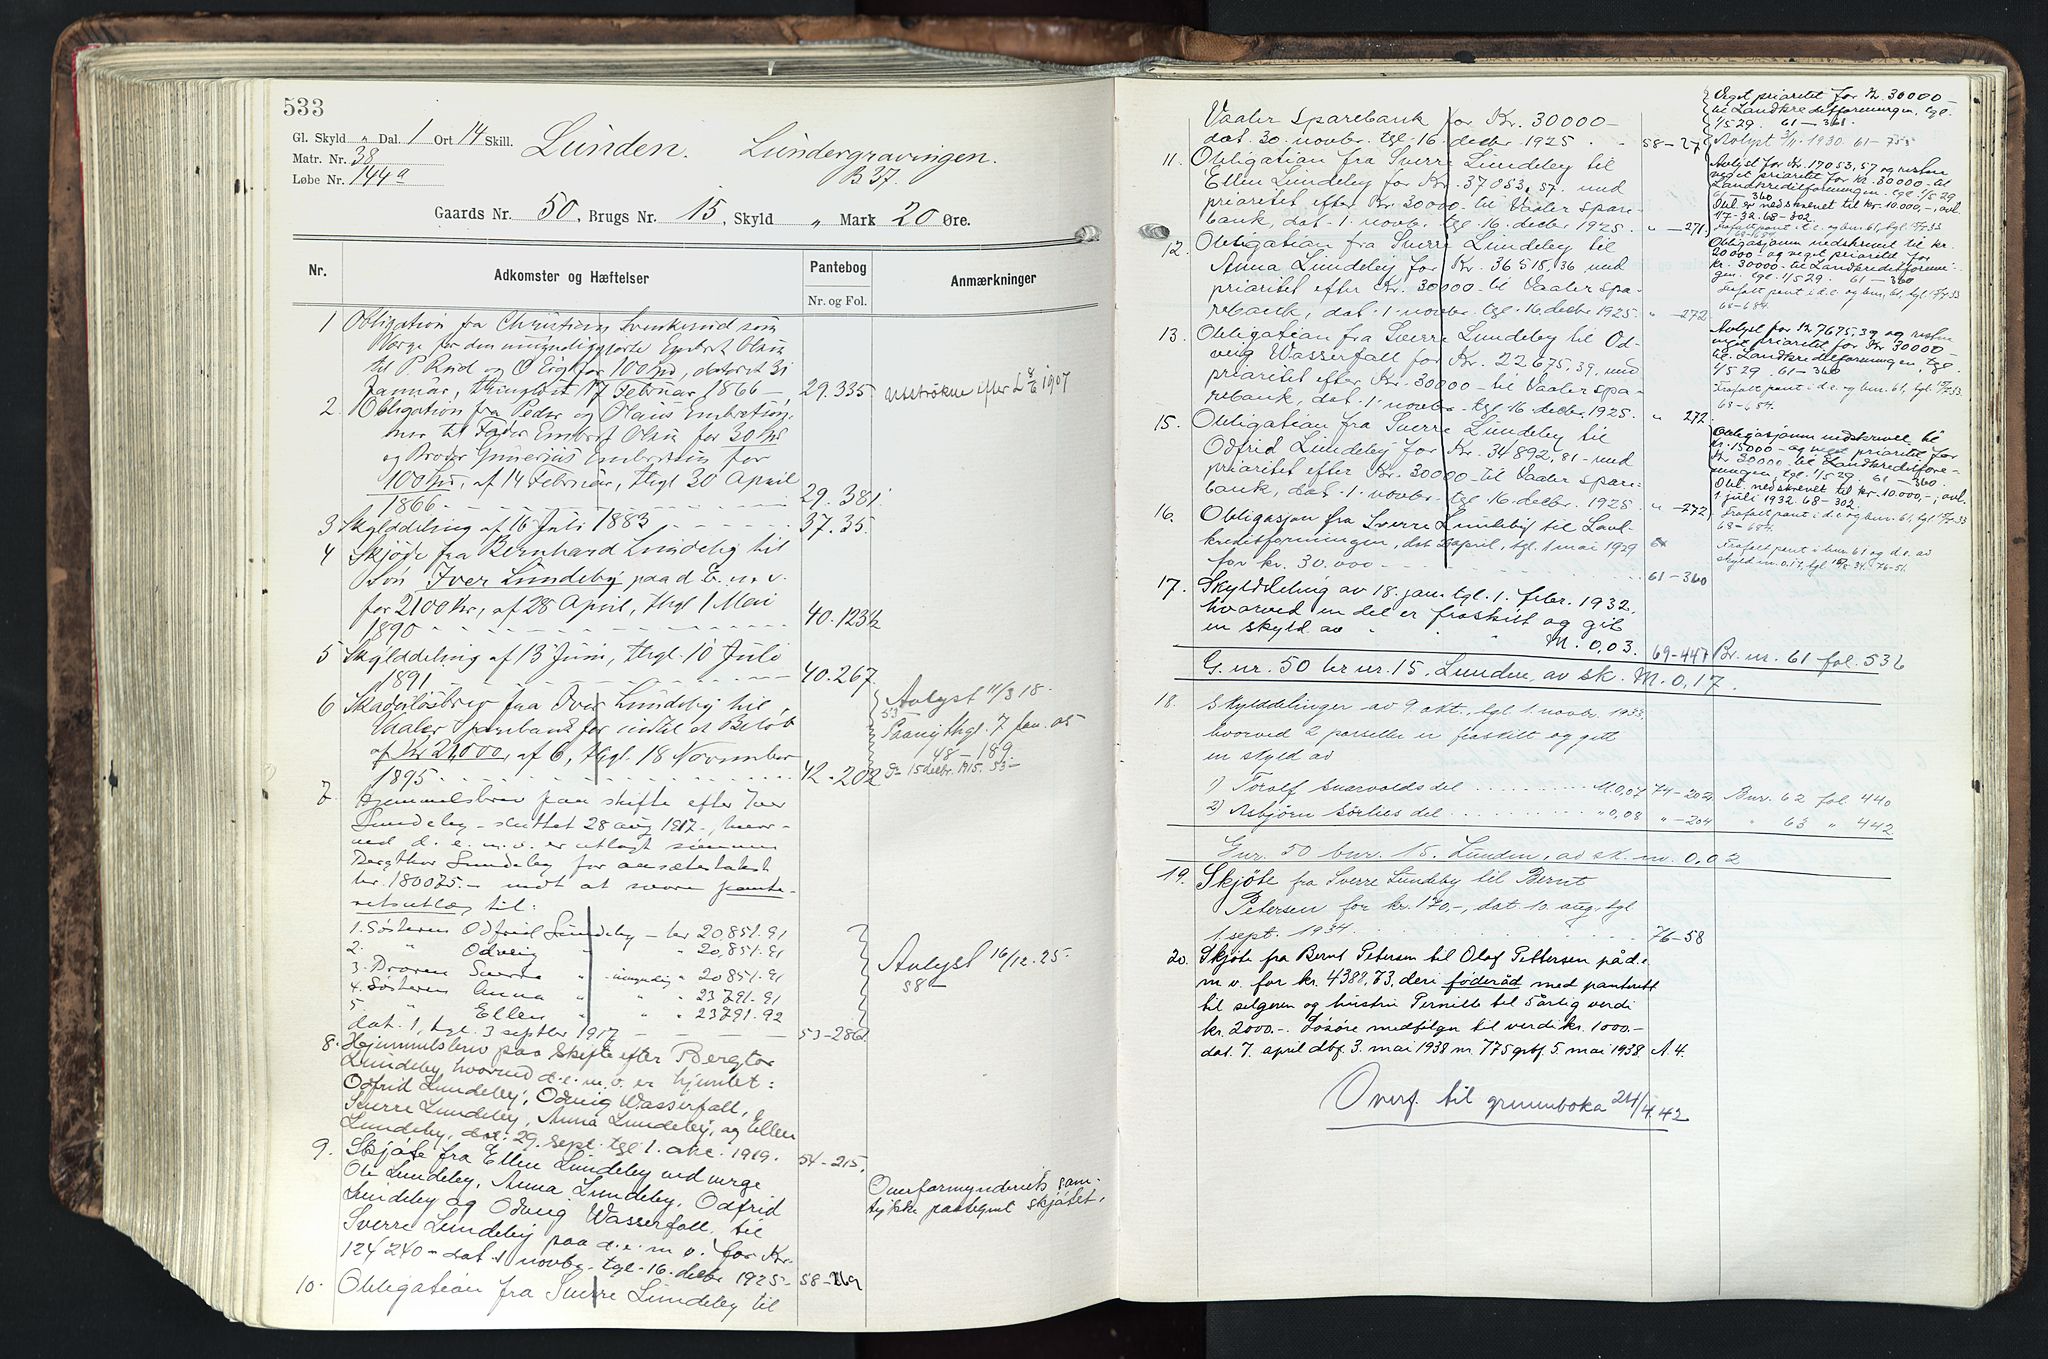 533
Gl. Skyld „ Dal. 1 Ort 14 Skill.
Matr. Nr. 38
Løbe Nr. 144a
Lunden. Lundergravingen.
B 37.
Gaards Nr. 50, Brugs Nr. 15, Skyld „ Mark 20 Øre.
Nr. Adkomster og Hæftelser Pantebog Nr. og Fol. Anmærkninger
1 Obligation fra Christian Svenkerud som
Værge for den umyndiggjorte Embret Olsen
til P Rud og O Eig for 100 Spd, dateret 31
Januar, thinglyst 17 Februar 1866 29.335 udstrøken efter L 8/6 1907
2 Obligation fra Peder og Olaus Embretsøn-
ner til Fader Embret Olsen for 30 Spd
og Broder Gunerius Embretsen for
100 Spd, af 14 Februar, thgl 30 April
1866 29.381
3 Skylddeling af 16 Juli 1883 37.35
4 Skjøde fra Bernhard Lundeby til
Søn Iver Lundeby paa d. E. m. v.
for 2100 Kr, af 28 April, thgl 1 Mai
1890 40.123½
5 Skylddeling af 13 Juni, thgl. 10 Juli
1891 40.267
6 Skadesløsbrev fra Iver Lundeby til
Vaaler Sparebank for indtil et Beløb
af Kr 21,000, af 6, thgl. 18 November
1895 42-202
Avlyst 11/3 18.
53
Paany thgl. 7 jan. 05
48-189.
do 15 decbr. 1915. 53-
7 Hjemmelsbrev paa skifte efter Iver
Lundeby - sluttet 28 aug 1917-, hvor-
ved d. e. m. v. er utlagt sønnen
Bergthor Lundeby for aasætestakst
kr. 18007 5.- mot at svare pante-
retsutlæg til:
1. Søsteren Odfrid Lundeby - kr 20,851.91
2. " Odveig " 20,851.91
3. Broren Sverre " umyndig " 20851.91
4. Søsteren Anna " " 23791.91
5. " Ellen " " " 23791.92
dat. 1, tgl. 3 septbr 1917 53-286
Avlyst 16/12.25.
58-
8. Hjemmelsbrev paa Skifte efter Bergtor
Lundeby, hvorved d. e. m. v. er hjemlet:
Odfrid Lundeby, Odveig Wasserfall,
Sverre Lundeby, Anna Lundeby, og Ellen
Lundeby, dat. 29. sept. tgl. 1. okt. 1919. 54-215.
9. Skjøte fra Ellen Lundeby ved verge
Ole Lundeby, Anna Lundeby, Odfrid
Lundeby og Odveig Wasserfall til
Sverre Lundeby paa d. e. m. v. for Kr.
124240- dat. 1 novbr. tgl. 16. decbr 1925- 58-269
Overformynderiets sam-
tykke paategnet skjøtet.
10. Obligation fra Sverre Lundeby til
Vaaler Sparebank for Kr. 30000-
dat. 30. novbr. tgl. 16. decbr 1925 58-27
Veget prioritet for Kr. 30000-
til Landkreditforeningen, tgl.
1/5 29. 61-361.
Avlyst 3/1 1930. 61-755
11. Obligation fra Sverre Lundeby til
Ellen Lundeby for Kr. 37053,57 med
prioritet efter Kr. 30000- til Vaaler spare-
bank, dat. 1. novbr. tgl. 16. decbr 1925. " -271
Avlyst for Kr. 17053,57 og resten
veget prioritet for kr. 30000- til
Landkreditforeningen tgl. 1/5 29
61-360
Obl. er nedskrevet til kr. 10.000,-, avl.
1/7-32. 68-302.
12. Obligation fra Sverre Lundeby til
Anna Lundeby for Kr. 36518,36 med
prioritet efter Kr. 30000- til Vaaler spa-
rebank, dat. 1. novbr. tgl. 16. decbr 1925. " -272
Obligasjonen nedskrevet til kr.
20000- og veget prioritet for
kr. 30000- til Landkreditforenin-
gen. tgl. 1/5 29. 61-360
Frafalt pant i d. e. og bnr. 61, tgl.
68-684.
13. Obligation fra Sverre Lundeby til Od-
veig Wasserfall for Kr. 22675,39, med
prioritet efter Kr. 30000- til Vaaler spa-
rebank, dat. 1. novbr. tgl. 16. decbr. 1925. " 272
Avlyst for Kr 7675,39 og resten
veget prioritet for Kr 30000-
til Landkreditforeningen, tgl.
1/5 29. 61-360
Frafalt pant i d. e. og bnr. 61, tgl.
68-684.
15. Obligation fra Sverre Lundeby til
Odfrid Lundeby for Kr. 34892,81- med
prioritet efter Kr. 30000- til Vaaler spare-
bank, dat. 1. novbr. tgl. 16. decbr 1925 " -272
Obligasjonen nedskrevet til
kr. 15000- og veget prioritet for
Kr 30000- til Landkreditfore-
ningen tgl. 1/5 29. 61-360.
Obl. nedskrevet til kr. 10.000,-, avl.
1. juli 1932. 68-302.
Frafalt pant i d. e. og bnr. 61, tgl.
68-684.
16. Obligasjon fra Sverre Lundeby til Land-
kreditforeningen, dat april, tgl. 1 mai 1929
for kr. 30.000 61-360
Frafalt pant i bnr. 61 og d. e. av
skyld m. 0.17, tgl 34. 76-51.
17. Skylddeling av 18. jan. tgl. 1. febr. 1932,
hvorved en del er fraskilt og gitt
en skyld av
M. 0,03. 69-447 Br. nr. 61 fol. 536
G. nr. 50 br. nr. 15. Lunden, av sk. M. 0,17.
18. Skylddelinger av 9. okt., tgl. 1. novbr. 1933,
hvorved 2 parseller er fraskilt og gitt
en skyld av
1) Torolf Snarvolds del M. 0,07 74-202 Bnr. 62 fol. 440
2) Asbjørn Sørlies del " 0,08 " -204 " 63 " 442
Gnr. 50 bnr. 15. Lunden, av sk. m. 0,02
19. Skjøte fra Sverre Lundeby til Bernt
Petersen for kr. 170,-, dat. 10. aug. tgl
1. sept. 1934 76-58
20. Skjøte fra Bernt Petersen til Olaf Pettersen på d. e.
m. v. for kr. 4388,73, deri føderåd med panterett
til selgeren og hustru Pernille til 5 årlig verdi
kr. 2000.-. Løsøre medfølger til verdi kr. 1000.-
dat. 7. april dbf. 3. mai 1938 nr. 775 gbf. 5. mai 1938 A. 4.
Overf. til grunnboka 24/4.42